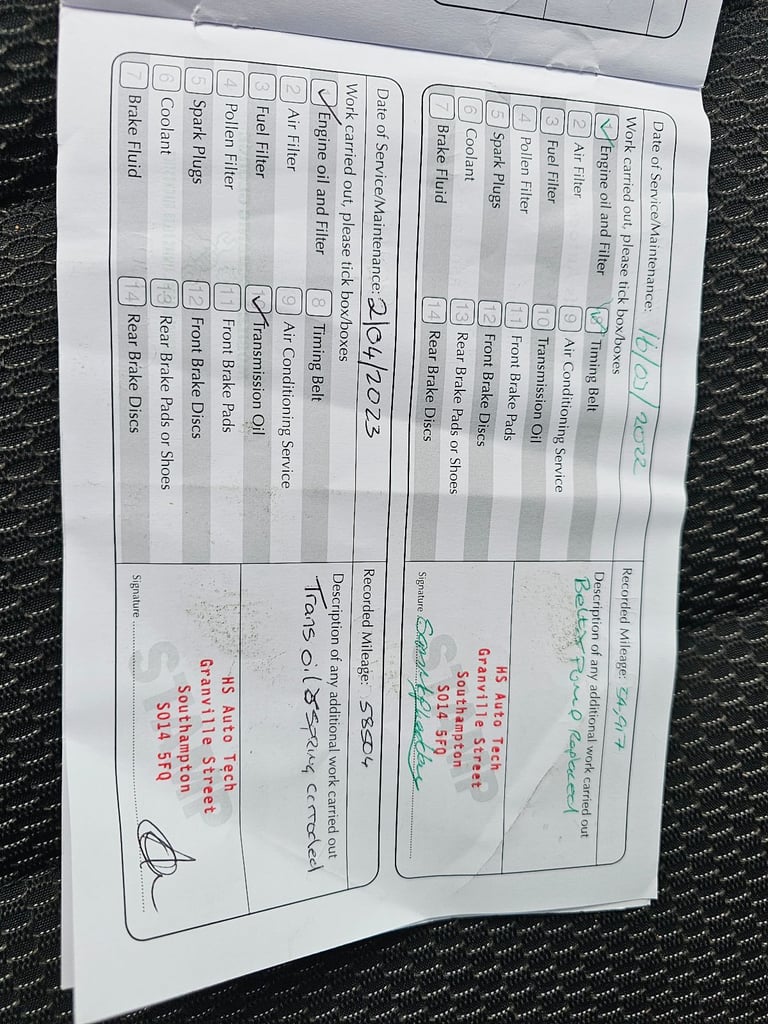 Date of Service/Maintenance: 16/03/2022
Recorded Mileage: 34,917
Work carried out, please tick box/boxes
1 Engine oil and Filter
8 Timing Belt
2 Air Filter
9 Air Conditioning Service
3 Fuel Filter
10 Transmission Oil
4 Pollen Filter
11 Front Brake Pads
5 Spark Plugs
12 Front Brake Discs
6 Coolant
13 Rear Brake Pads or Shoes
7 Brake Fluid
14 Rear Brake Discs
Description of any additional work carried out
Belt & Pump Replaced
STAMP
HS Auto Tech
Granville Street
Southampton
SO14 5FQ
Signature
Date of Service/Maintenance: 2/04/2023
Recorded Mileage: 58504
Work carried out, please tick box/boxes
1 Engine oil and Filter
8 Timing Belt
2 Air Filter
9 Air Conditioning Service
3 Fuel Filter
10 Transmission Oil
4 Pollen Filter
11 Front Brake Pads
5 Spark Plugs
12 Front Brake Discs
6 Coolant
13 Rear Brake Pads or Shoes
7 Brake Fluid
14 Rear Brake Discs
Description of any additional work carried out
Trans oil & spring corroded
STAMP
HS Auto Tech
Granville Street
Southampton
SO14 5FQ
Signature